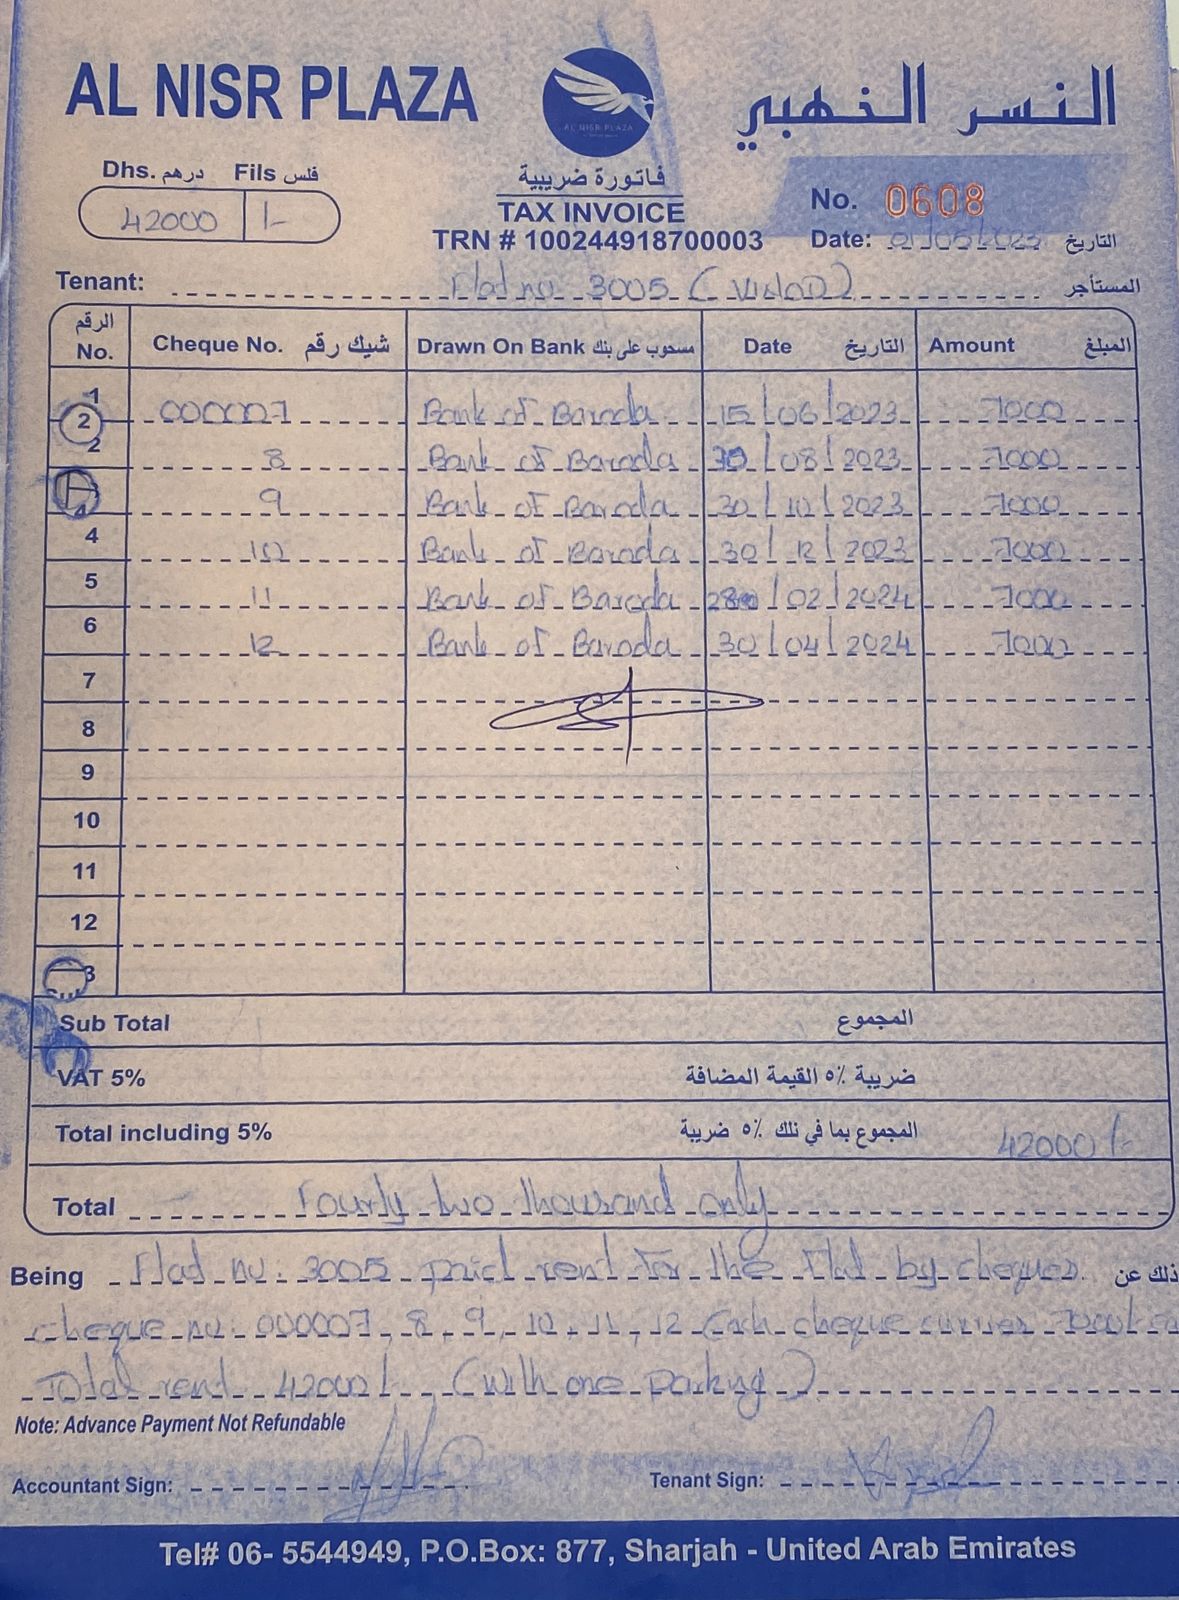 AL NISR PLAZA
AL NISR PLAZA
النسر الذهبي
Dhs. درهم Fils فلس
42000 /-
فاتورة ضريبية
TAX INVOICE
TRN # 100244918700003
No. 0608
Date: 01/06/2023 التاريخ
Tenant: Flat no 3005 ( المستأجر
الرقم No. Cheque No. شيك رقم Drawn On Bank مسحوب على بنك Date التاريخ Amount المبلغ
1 000007 Bank of Baroda 15/06/2023 7000
2 8 Bank of Baroda 30/08/2023 7000
9 Bank of Baroda 30/10/2023 7000
4 10 Bank of Baroda 30/12/2023 7000
5 11 Bank of Baroda 28/02/2024 7000
6 12 Bank of Baroda 30/04/2024 7000
7
8
9
10
11
12
3
Sub Total المجموع
VAT 5% ضريبة ٥٪ القيمة المضافة
Total including 5% المجموع بما في ذلك ٥٪ ضريبة 42000/-
Total Fourly two thousand only
Being Flat no. 3005 paid rent for the Flat by cheques. ذلك عن
cheque no. 000007, 8, 9, 10, 11, 12 Each cheque
Total rent 42000/- (With one parking)
Note: Advance Payment Not Refundable
Accountant Sign:
Tenant Sign:
Tel# 06- 5544949, P.O.Box: 877, Sharjah - United Arab Emirates